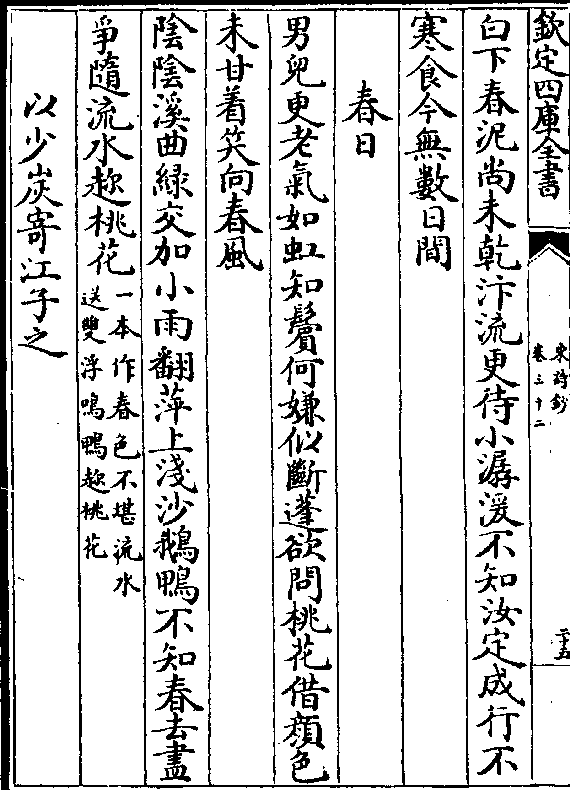 欽定四庫全書
宋詩鈔
卷三十二
二十五
白下春泥尚未乾汴流更待小潺湲不知汝定成行不
寒食今無數日間
春日
男兒更老氣如虹知鬢何嫌似斷蓬欲問桃花借顔色
未甘着笑向春風
陰陰溪曲緑交加小雨翻萍上淺沙鵝鴨不知春去盡
爭隨流水趂桃花一本作春色不堪流水
送雙浮鳴鴨趂桃花
以少炭寄江子之